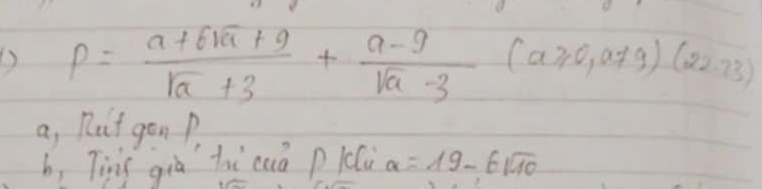 1) P = (a + 6√a + 9)/(√a + 3) + (a - 9)/(√a - 3) (a ≥ 0, a ≠ 9) (22-23)
a, Rút gọn P
b, Tính giá trị của P khi a = 19 - 6√10